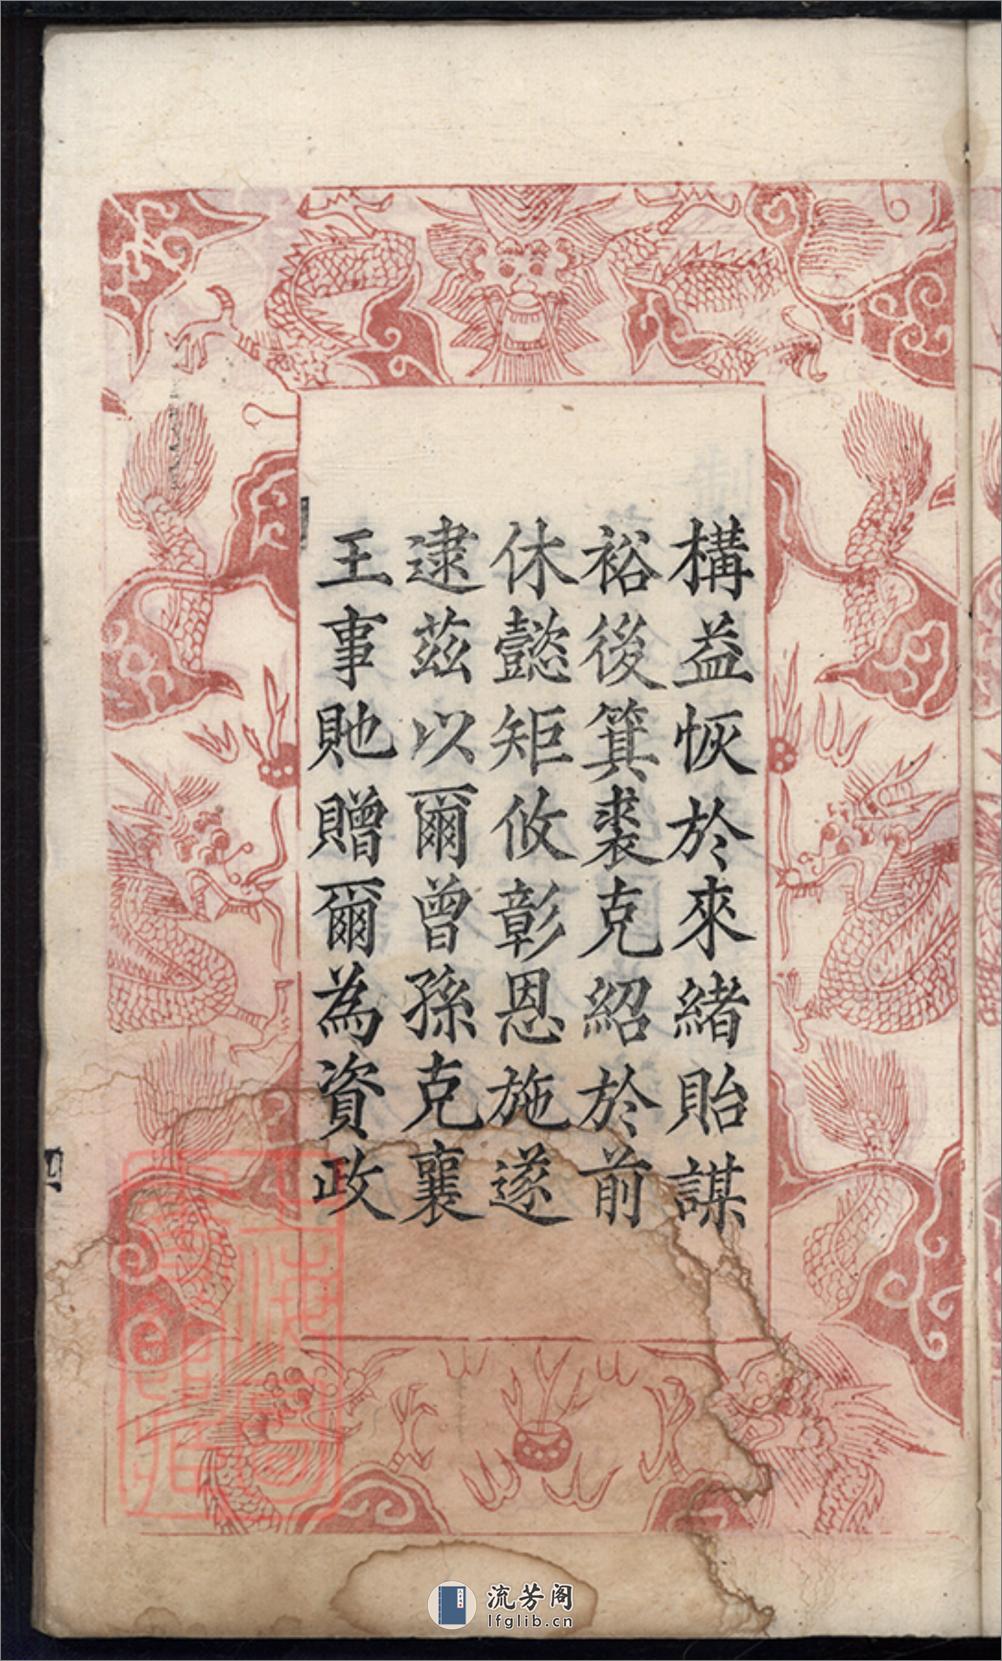 構益恢於來緒貽謀
裕後箕裘克紹於前
休懿矩攸彰恩施遂
逮茲以爾曾孫克襄
王事貤贈爾為資政
流芳阁
lfglib.cn